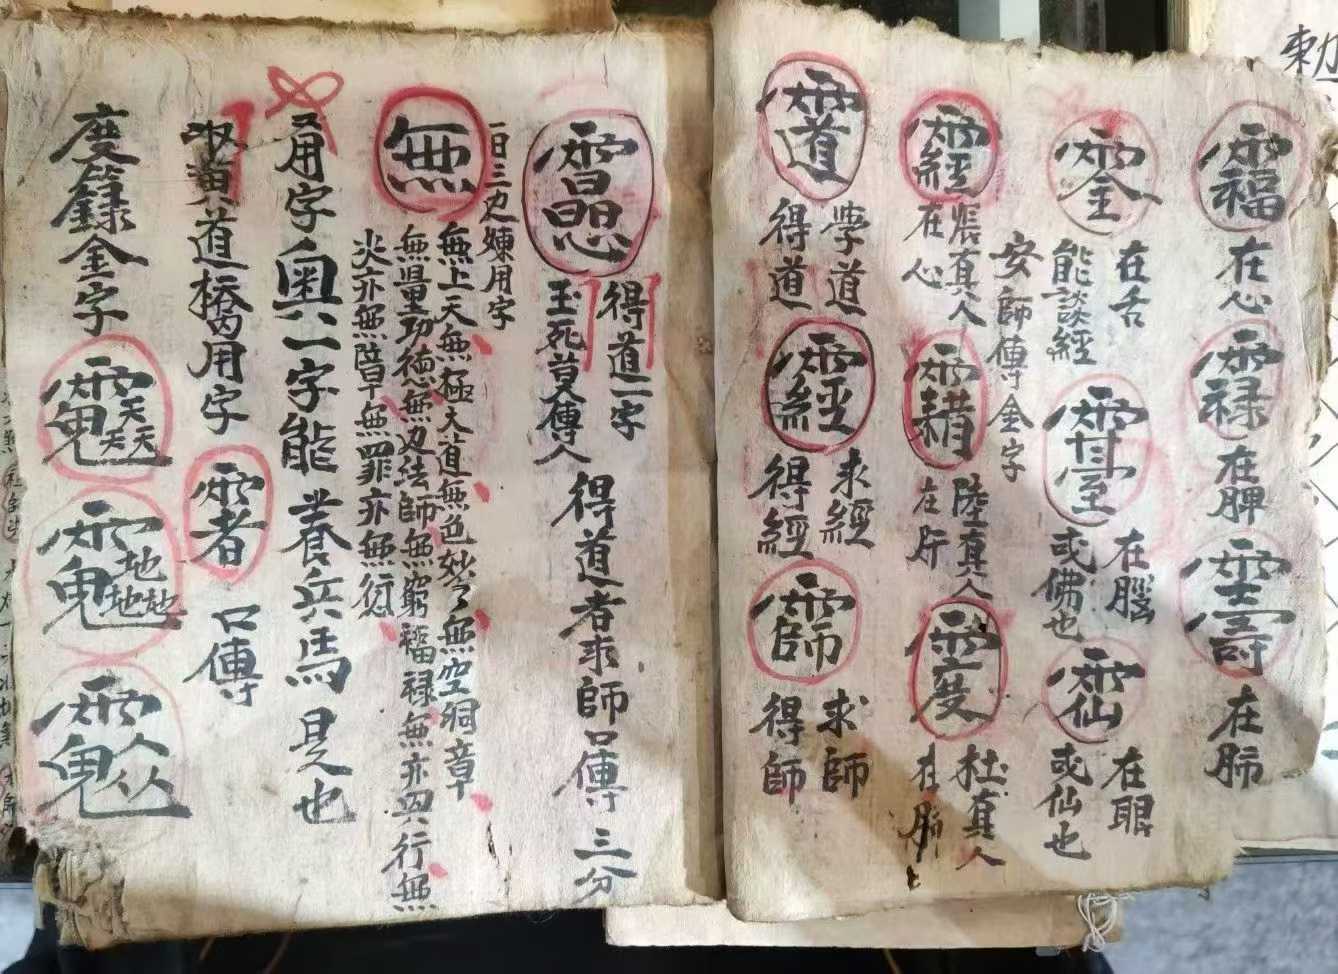 勅
⿱雨福 在心 ⿱雨禄 在脾 ⿱雨壽 在肺
⿱雨金 在舌 能談經 在腦 或佛也 ⿱雨仙 在眼 或仙也
安師傳金字
⿱雨經 張真人 在心 陸真人 在肝 ⿱雨度 杜真人 在肺
⿱雨道 學道 得道 ⿱雨經 求經 得經 ⿱雨師 求師 得師
得道二字 玉死莫傳人 得道者求師口傳三分
一日三边煉用字
無 無上天無極大道無色妙々無空洞章
無量功德無边法師無窮福禄無亦四行無
災亦無階無罪亦無愆
再用字奥二字能養兵馬是也
収黄道橋用字 ⿱雨者 口傳
度籙金字 ⿱雨魁天天天 ⿱雨鬼地地地 ⿱雨鬼人人人